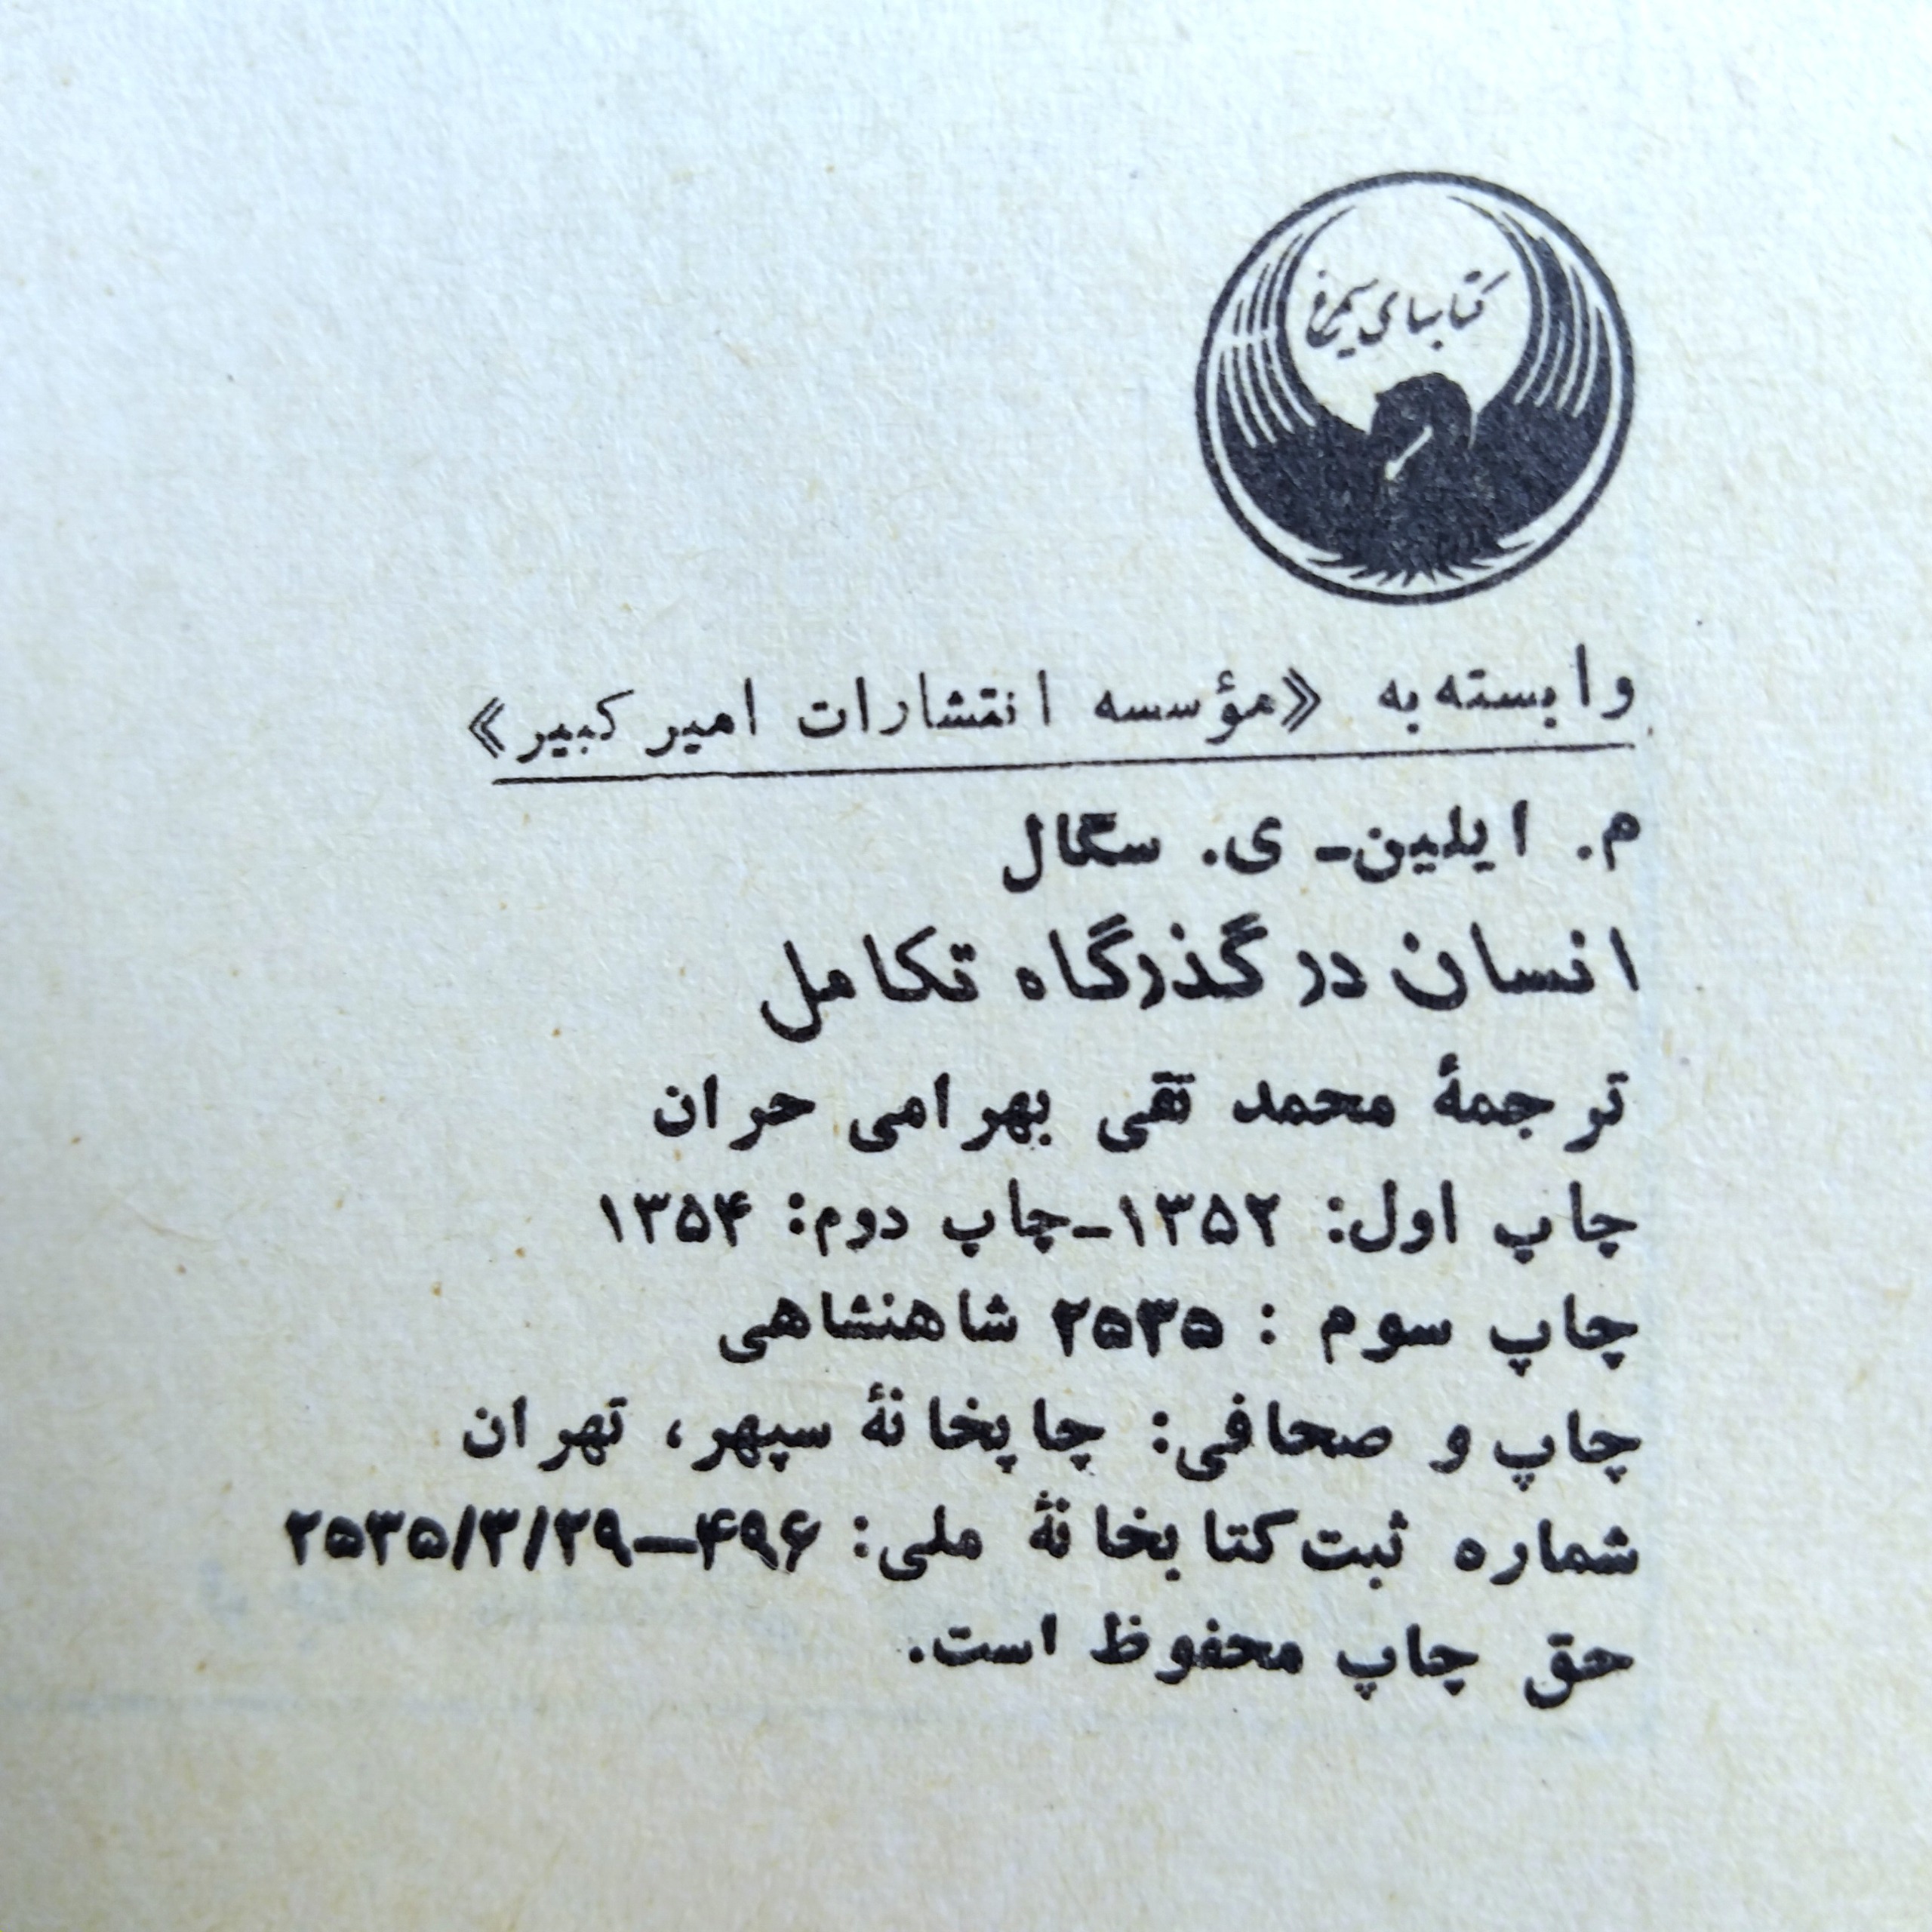 کتابهای سیمرغ
وابسته به «مؤسسه انتشارات امیرکبیر»
م. ایلین- ی. سگال
انسان در گذرگاه تکامل
ترجمهٔ محمد تقی بهرامی حران
چاپ اول: ۱۳۵۲-چاپ دوم: ۱۳۵۴
چاپ سوم : ۲۵۳۵ شاهنشاهی
چاپ و صحافی: چاپخانهٔ سپهر، تهران
شماره ثبت کتابخانهٔ ملی: ۴۹۶-۲۵۳۵/۳/۲۹
حق چاپ محفوظ است.